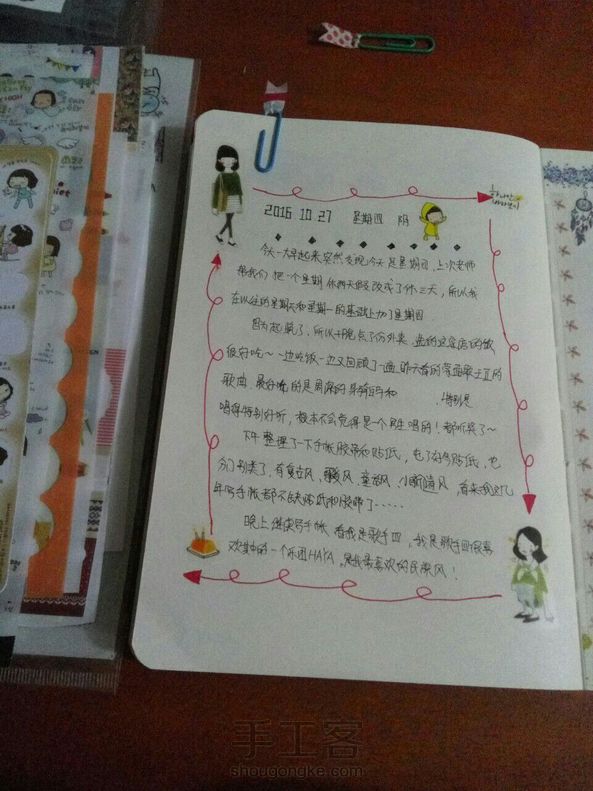 2016 10 27 星期四 阴
今天一大早起来突然发现今天是星期四,上次老师
帮我们把一个星期休两天假改成了休三天,所以我
在以往的星期天和星期一的基础上加了星期四
因为起晚了,所以干脆点了份外卖
很好吃~一边吃饭一边又回顾了一遍昨天看的
歌曲,最好听的是周深的 和
唱得特别好听,根本不会觉得是一个男生唱的!都听哭了~
下午整理了一下手帐胶带和贴纸,
分门别类了,有复古风、童话风、小清新风,看来我这几
年写手帐都不缺贴纸和胶带了……
晚上继续写手帐,看我是歌手四,我是歌手四很喜
欢其中的一个乐团HAYA,是我最喜欢的民族风!
手工客
shougongke.com